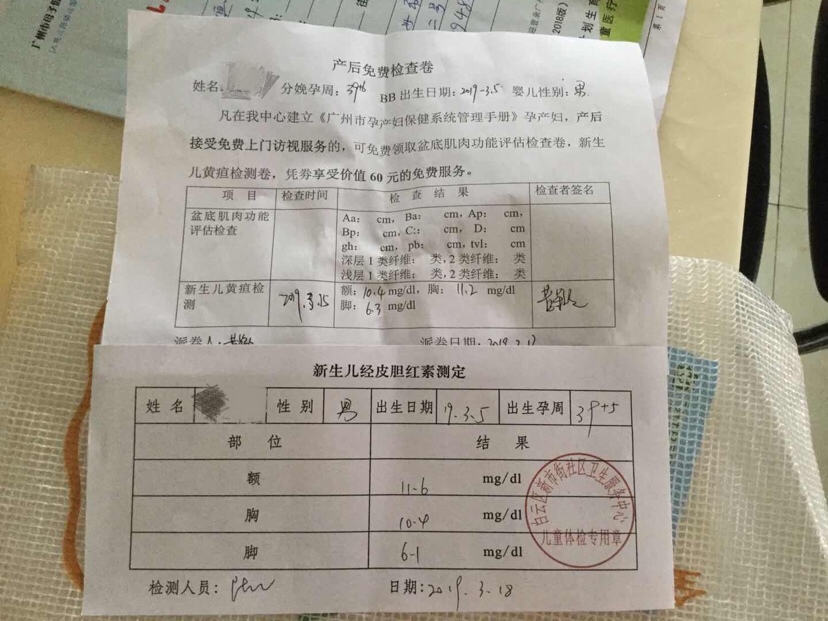 广州市母子
2018版)
第1页
产后免费检查卷
姓名 分娩孕周：39+6 BB出生日期：2019-3.5 婴儿性别：男
凡在我中心建立《广州市孕产妇保健系统管理手册》孕产妇，产后
接受免费上门访视服务的，可免费领取盆底肌肉功能评估检查卷，新生
儿黄疸检测卷，凭劵享受价值60元的免费服务。
项 目 检查时间 检 查 结 果 检查者签名
盆底肌肉功能
评估检查
Aa: cm, Ba: cm, Ap: cm,
Bp: cm, C: cm, D: cm
gh: cm, pb: cm, tvl: cm
深层1类纤维： 类,2类纤维： 类
浅层1类纤维： 类,2类纤维： 类
新生儿黄疸检
测
2019.3.15
额：10.4 mg/dl，胸：11.2 mg/dl
脚：6.3 mg/dl
派卷人： 派卷日期：
新生儿经皮胆红素测定
姓 名 性 别 男 出生日期 19.3.5 出生孕周 39+5
部 位 结 果
额 11-6 mg/dl
胸 10-4 mg/dl
脚 6-1 mg/dl
白云区新市街社区卫生服务中心
儿童体检专用章
检测人员： 日期：2019.3.18